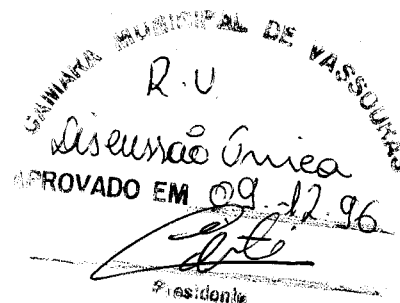 CAMARA MUNICIPAL DE VASSOURAS
R.U
Discussão Única
APROVADO EM 09.12.96
Presidente